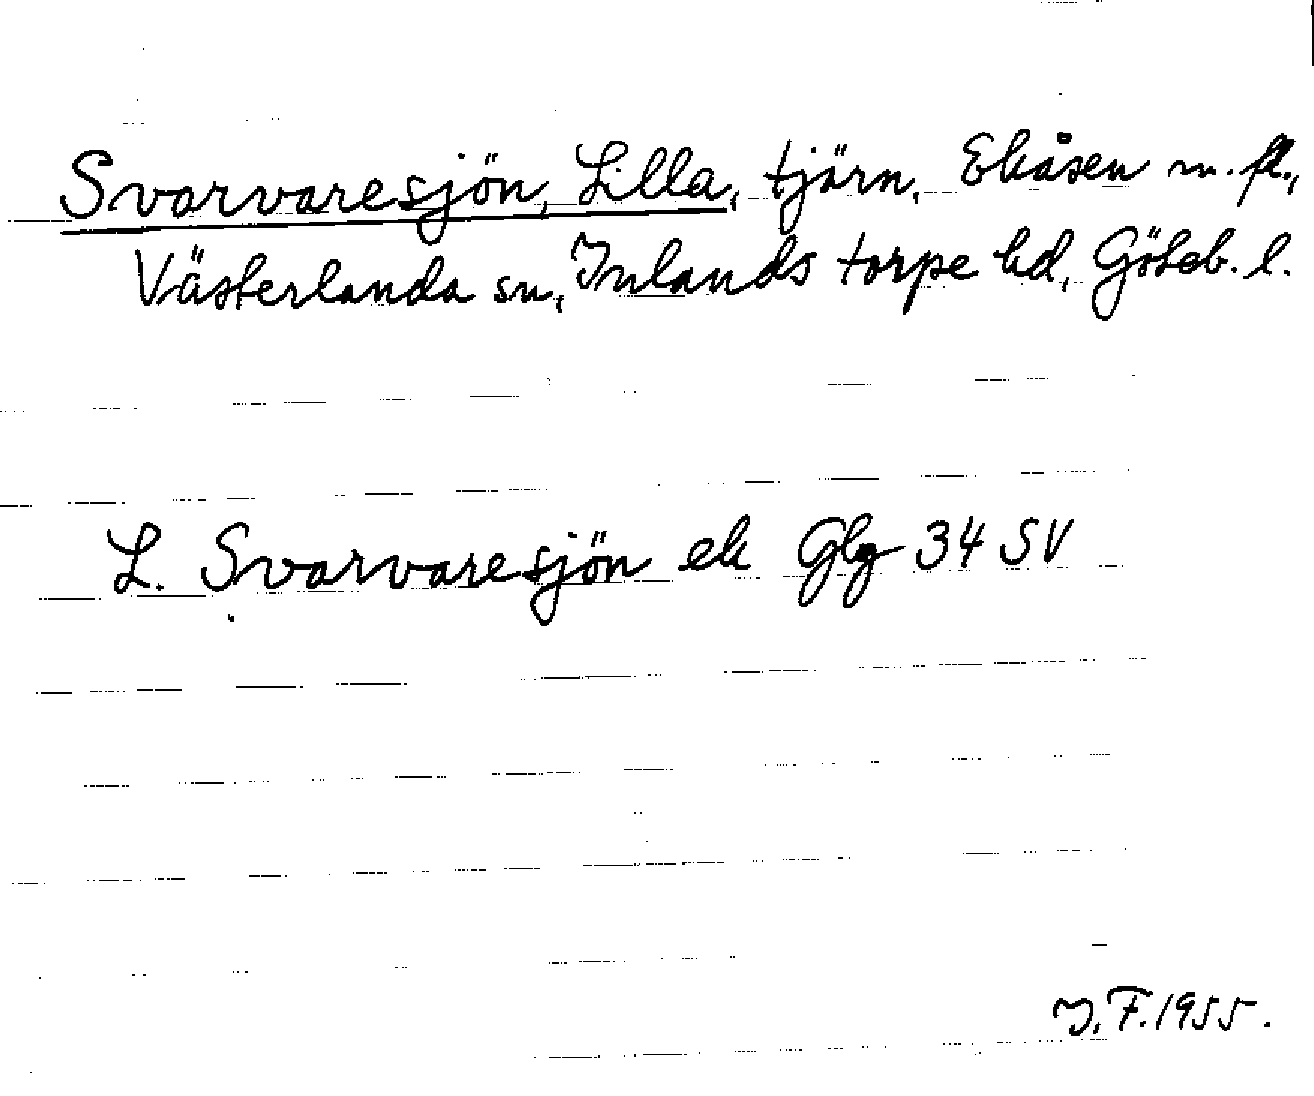 Svarvaresjön, Lilla, tjärn, Ekåsen m. fl.,
Västerlanda sn, Inlands torpe hd, Göteb. l.
L. Svarvaresjön ek Glg 34 SV
J. F. 1955.